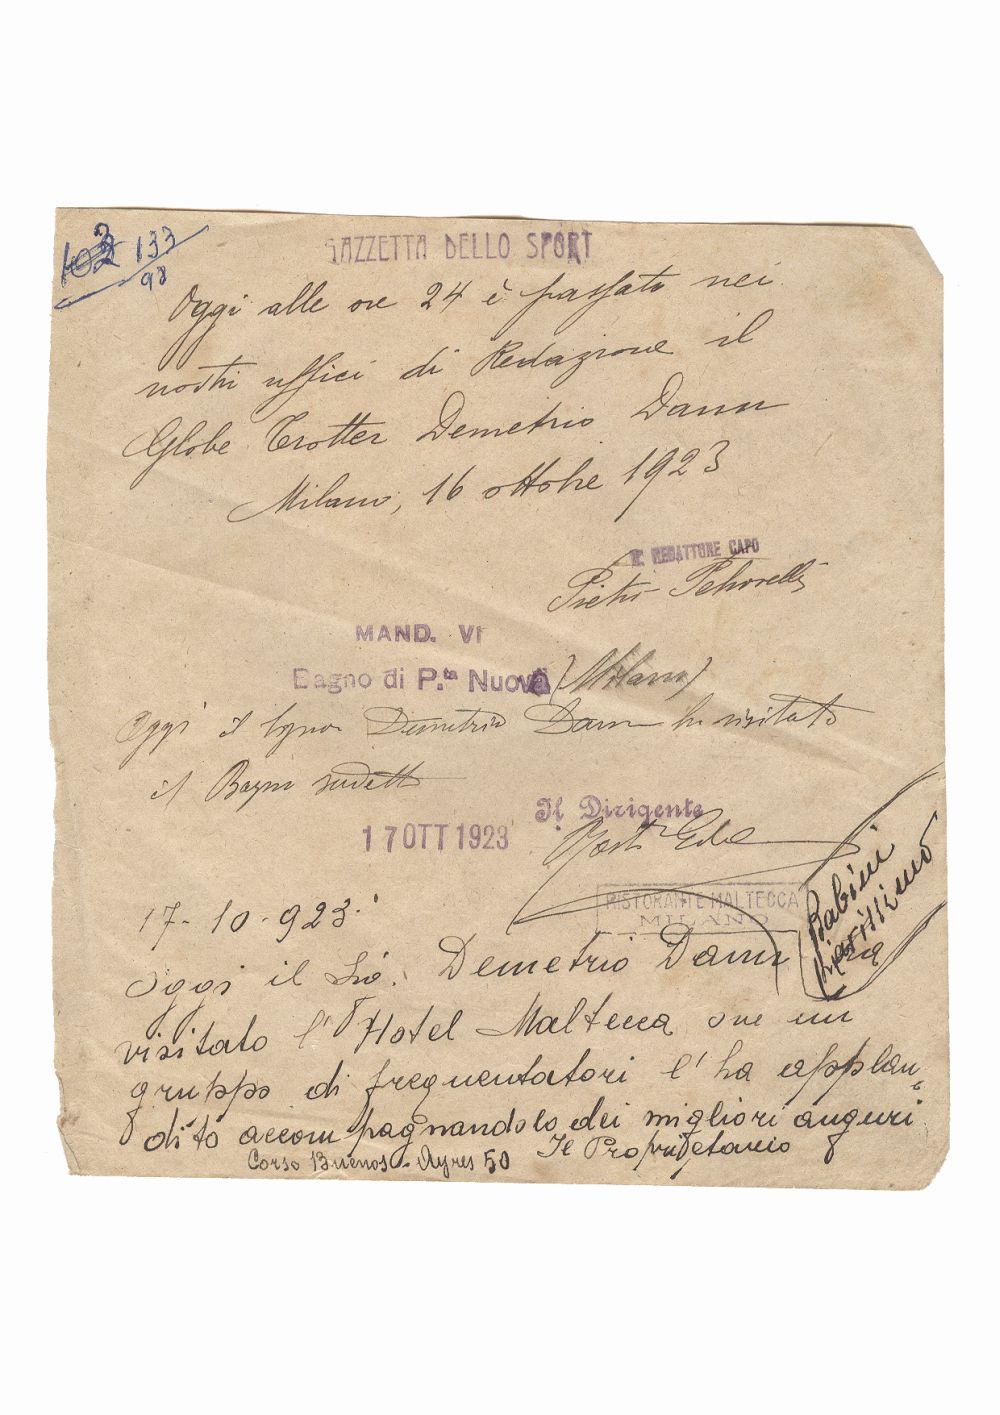 133
98
GAZZETTA DELLO SPORT
Oggi alle ore 24 è passato nei
nostri uffici di Redazione il
Globe Trotter Demetrio Dann
Milano, 16 ottobre 1923
IL REDATTORE CAPO
Pietro Petrovelli
MAND. VI
Bagno di P.ta Nuova (Milano)
Oggi il Signor Demetrio Dann ha visitato
il Bagno sudetto
Il Dirigente
17 OTT 1923
RISTORANTE MALTECCA
MILANO
17-10-923.
Oggi il Sig. Demetrio Dann ha
visitato l'Hotel Maltecca ove un
gruppo di frequentatori l'ha applau-
dito accompagnandolo dei migliori auguri
Corso Buenos-Ayres 50 Il Proprietario
Rabini